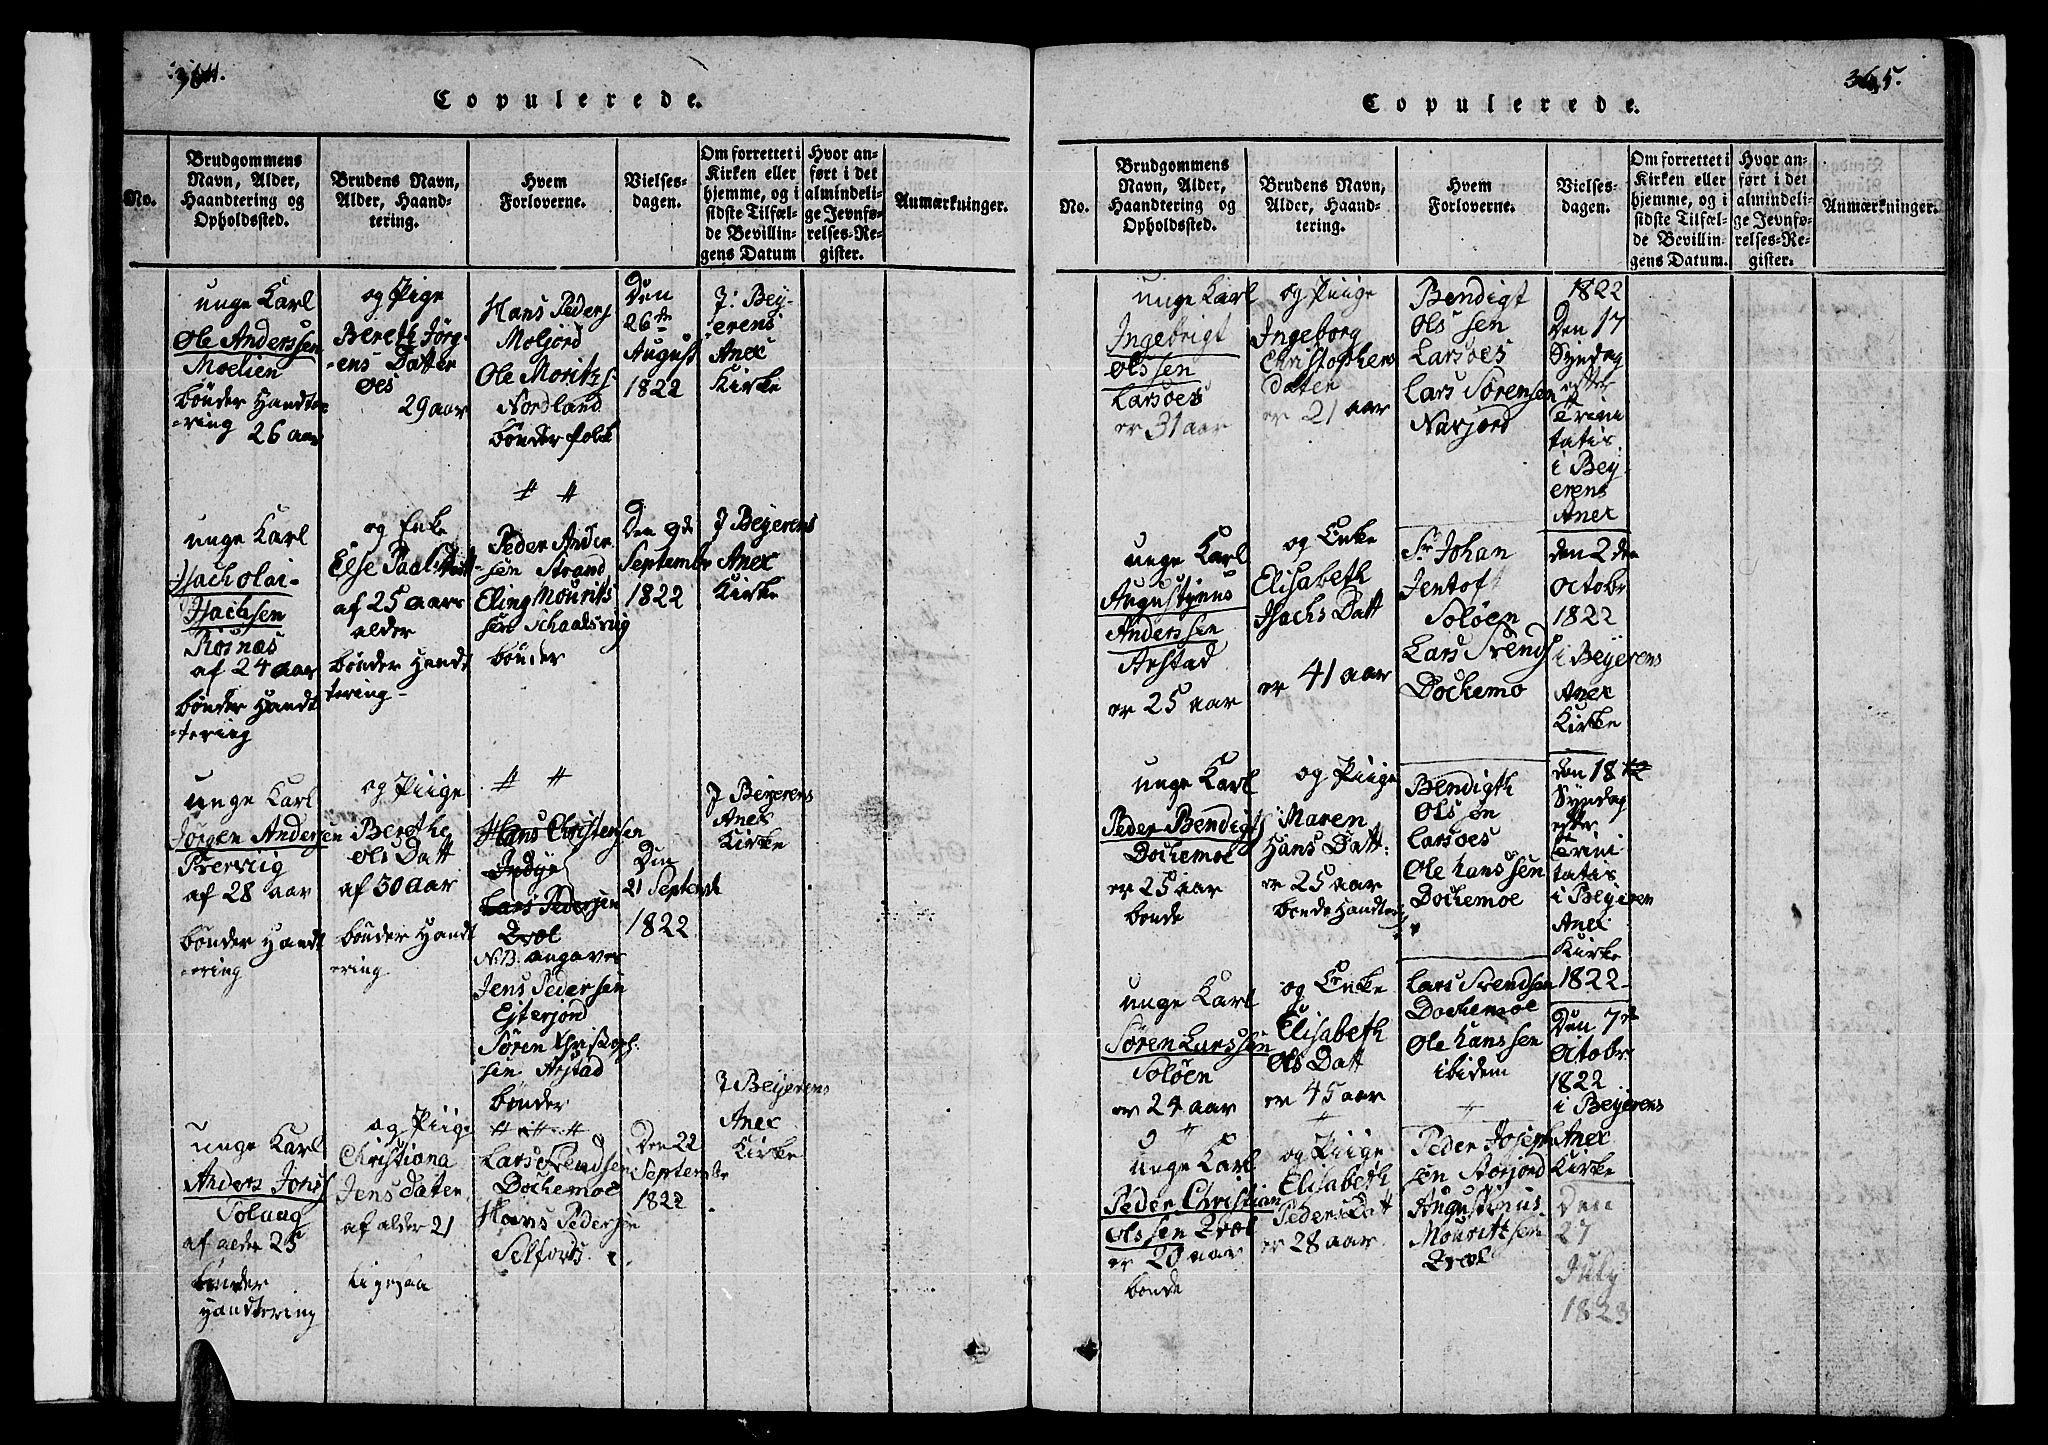 364.
Copulerede.
No.
Brudgommens
Navn, Alder,
Haandtering og
Opholdssted.
Brudens Navn,
Alder, Haand-
tering.
Hvem
Forloverne.
Vielses-
dagen.
Om forrettet i
Kirken eller
hjemme, og i
sidste Tilfæl-
de Bevillin-
gens Datum
Hvor an-
ført i det
almindeli-
ge Jevnfø-
relses-Re-
gister.
Anmærkninger.
unge Karl
Ole Anderssen
Moelien
bønder Handte
-ring 26 aar
og Pige
Bereth Jörg-
-ens Datter
Ols
29 aar
Hans Peders
Moljord
Ole Moritzs
Nordland
bönder folck
Den
26de
August
1822
J: Bey-
erens
Anex
Kirke
unge Karl
Isacholai-
Isachsen
Rosnæs
af 24 aar
bønder Handt
-tering
og Enke
Else Paals Datt-
af 25 aars
alder
bönder Handt
tering-
# #
Peder Ander
sen Strand
Eling Mourits
sen Schaalsvig
bønder
Den 9de
Septembr
1822
J Beyerens
Anex
Kirke
unge Karl
Jörgen Andersen
Trervig
af 28 aar
bönder Handt
-ering
og Piige
Berethe
Ols Datt
af 30 aar
bönder Handt
ering
# #
Hans Christensen
Indye
Lars Pedersen
Evol
N.B. angaves
Jens Pedersen
Eiterjord
Sören Christoph.
sen Arstad
bønder
Den
21 Septembr
1822
J Beyerens
Anex
Kirke
unge Karl
Anders Jonss
Tolaug
af alder 25
bönder
Handtering
og Piige
Christiana
Jens daten
af alder 21
Ligesaa
# # #
Lars Svendsen
Dochemoe
Hans Pedersen
Selfors
Den 22
Septembr
1822
J Beyerens
Anex
Kirke
365.
Copulerede.
No.
Brudgommens
Navn, Alder,
Haandtering og
Opholdssted.
Brudens Navn,
Alder, Haand-
tering.
Hvem
Forloverne.
Vielses-
dagen.
Om forrettet i
Kirken eller
hjemme, og i
sidste Tilfæl-
de Bevillin-
gens Datum.
Hvor an-
ført i det
almindeli-
ge Jevnfø-
relses-Re-
gister.
Anmærkninger.
unge Karl
Ingebrigt
Olssen
Larsoes
er 31 aar
og Piige
Ingeborg
Christophers
daten
er 21 aar
Bendigt
Ols sen
Larsoes
Lars Sörensen
Navjord
1822
Den 17
Syndag
efter
Trini
tatis
i Bey-
erens
Anex
unge Karl
Augustinus
Anderssen
Arstad
er 25 aar
og Enke
Elisabeth
Isachs Datt
er 41 aar
Sr Johan
Jentof
Soløen
Lars Svends
Dochemo
den 2den
Octobr
1822
i Beyerens
Anex
Kirke
unge Karl
Peder Bendigts
Dochemoe
er 25 aar
bonde
og Piige
Maren
Hans Datt:
er 25 aar
bonde Handter
Bendigth
Ols søn
Larsoes
Ole Hanssen
Dochemoe
den 18
Syndag
efter
Trini
tatis
i Beyeren
Anex
Kirke
1822
unge Karl
Sören Larssen
Soløen
er 24 aar
og Enke
Elisabeth
Ols Datt
er 45 aar
Lars Svendsen
Dochemoe
Ole Hanssen
ibidem
Den 7de
Octobr
1822
i Beyerens
Anex
Kirke
unge Karl
Peder Christian
Olssen Evol
er 20 aar
bonde
og Piige
Elisabeth
Peders Datt
er 28 aar
Peder Joseph
sen Storjord
Augustinus
Mouritssen
Evol
Den
27
July
1823